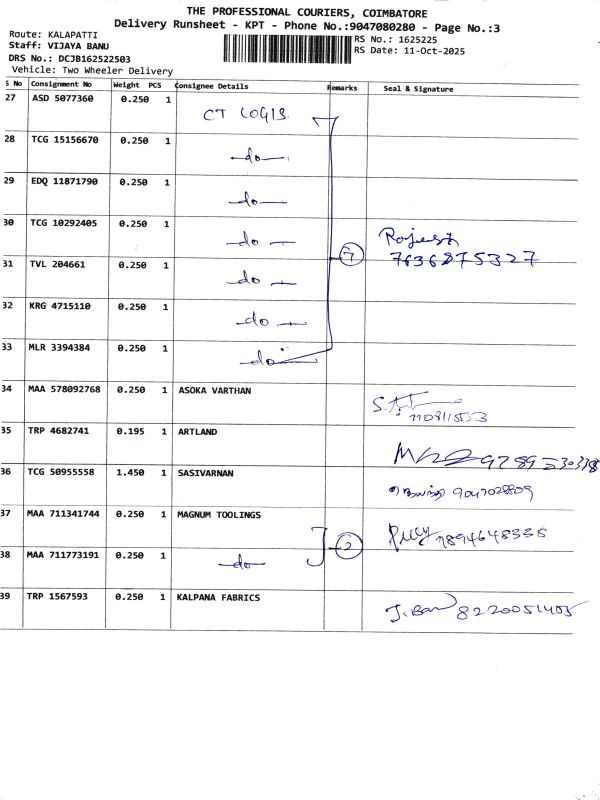 THE PROFESSIONAL COURIERS, COIMBATORE
Delivery Runsheet - KPT - Phone No.:9047080280 - Page No.:3
Route: KALAPATTI
Staff: VIJAYA BANU
DRS No.: DCJB162522503
Vehicle: Two Wheeler Delivery
RS No.: 1625225
RS Date: 11-Oct-2025
S No Consignment No Weight PCS Consignee Details Remarks Seal & Signature
27 ASD 5077360 0.250 1 CT LOGIS
28 TCG 15156670 0.250 1 -do-
29 EDQ 11871790 0.250 1 -do-
30 TCG 10292405 0.250 1 -do- 7 Rajesh
7636875327
31 TVL 204661 0.250 1 -do-
32 KRG 4715110 0.250 1 -do-
33 MLR 3394384 0.250 1 -do-
34 MAA 578092768 0.250 1 ASOKA VARTHAN
35 TRP 4682741 0.195 1 ARTLAND
36 TCG 50955558 1.450 1 SASIVARNAN 9047028809
37 MAA 711341744 0.250 1 MAGNUM TOOLINGS 2 7894648335
38 MAA 711773191 0.250 1 -do-
39 TRP 1567593 0.250 1 KALPANA FABRICS 8220051405